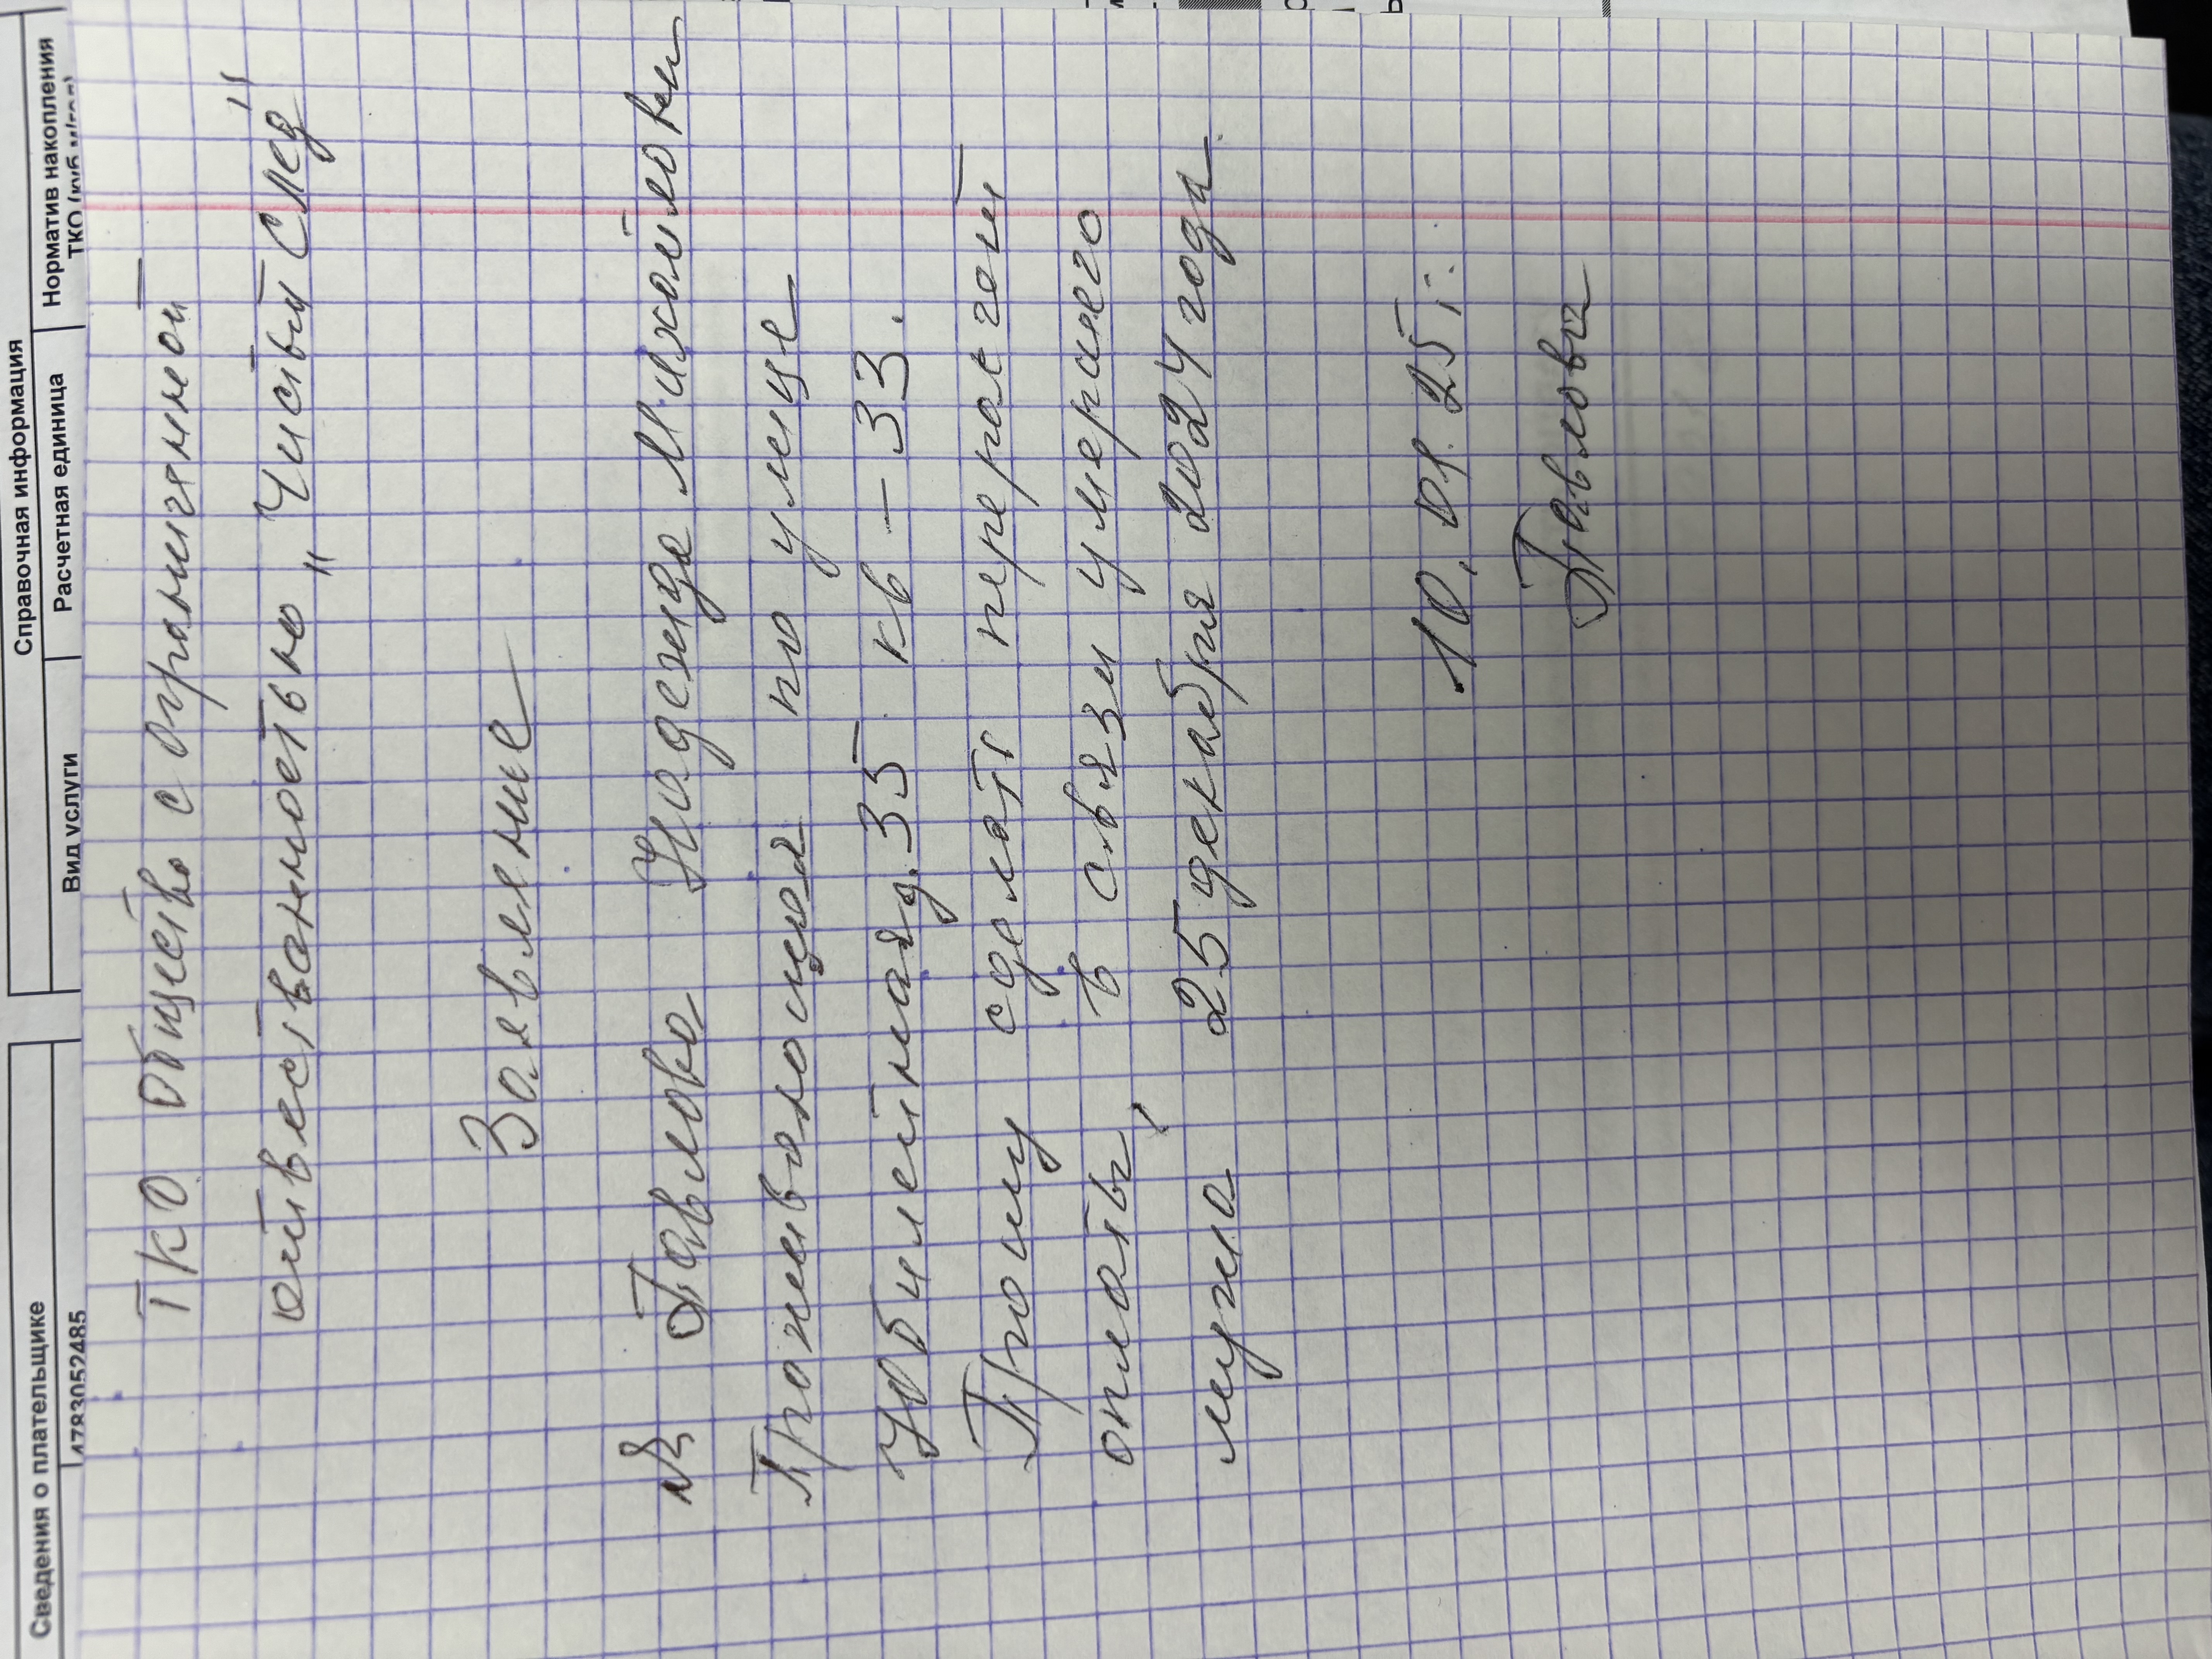 Справочная информация
Сведения о плательщике
Вид услуги
Расчетная единица
Норматив накопления
ТКО (куб.м/год)
14783052485
ТКО Общество с ограниченной
ответственностью „Чистый След"
Заявление
Я Павлова Надежда Михайловна
Проживающая по улице
Юбилейная д. 35 кв – 33.
Прошу сделать перерасчёт
оплаты, в связи умершего
мужа 25 декабря 2024 года.
10. 01. 25 г.
Павлова